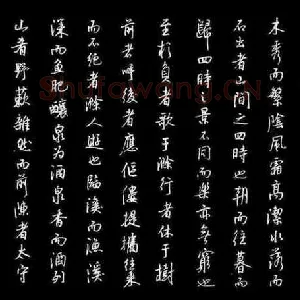 木秀而繁陰風霜高潔水落而
石出者山間之四時也朝而往暮而
歸四時之景不同而樂亦無窮也
至於負者歌于滁行者休于樹
前者呼後者應傴僂提攜往來
而不絕者滁人遊也臨溪而漁溪
深而魚肥釀泉為酒泉香而酒洌
山肴野蔌雜然而前陳者太守
Shufawang.CN